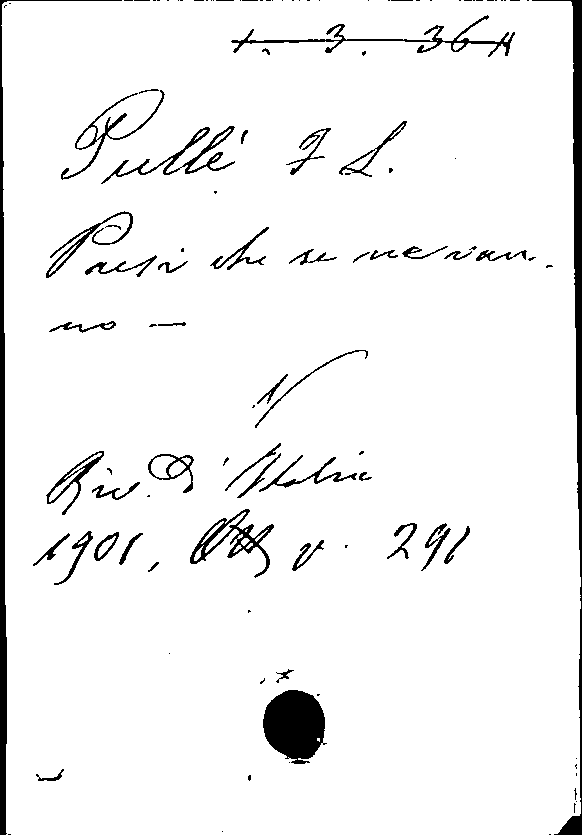 1. 3. 36
Pullé F L.
Paesi che se ne van-
no —
V
Riv. d'Italia
1901, v. 291